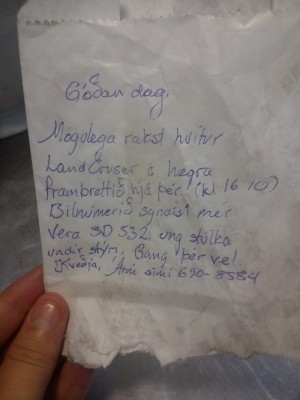 Góðan dag.
Mögulega rakst hvítur
Land Cruser á hægra
frambrettið hjá þér. (kl 16 10)
Bílnúmerið sýndist mér
vera SD 532, ung stúlka
undir stýri. Gangi þér vel.
Kveðja, Árni sími 690-8584